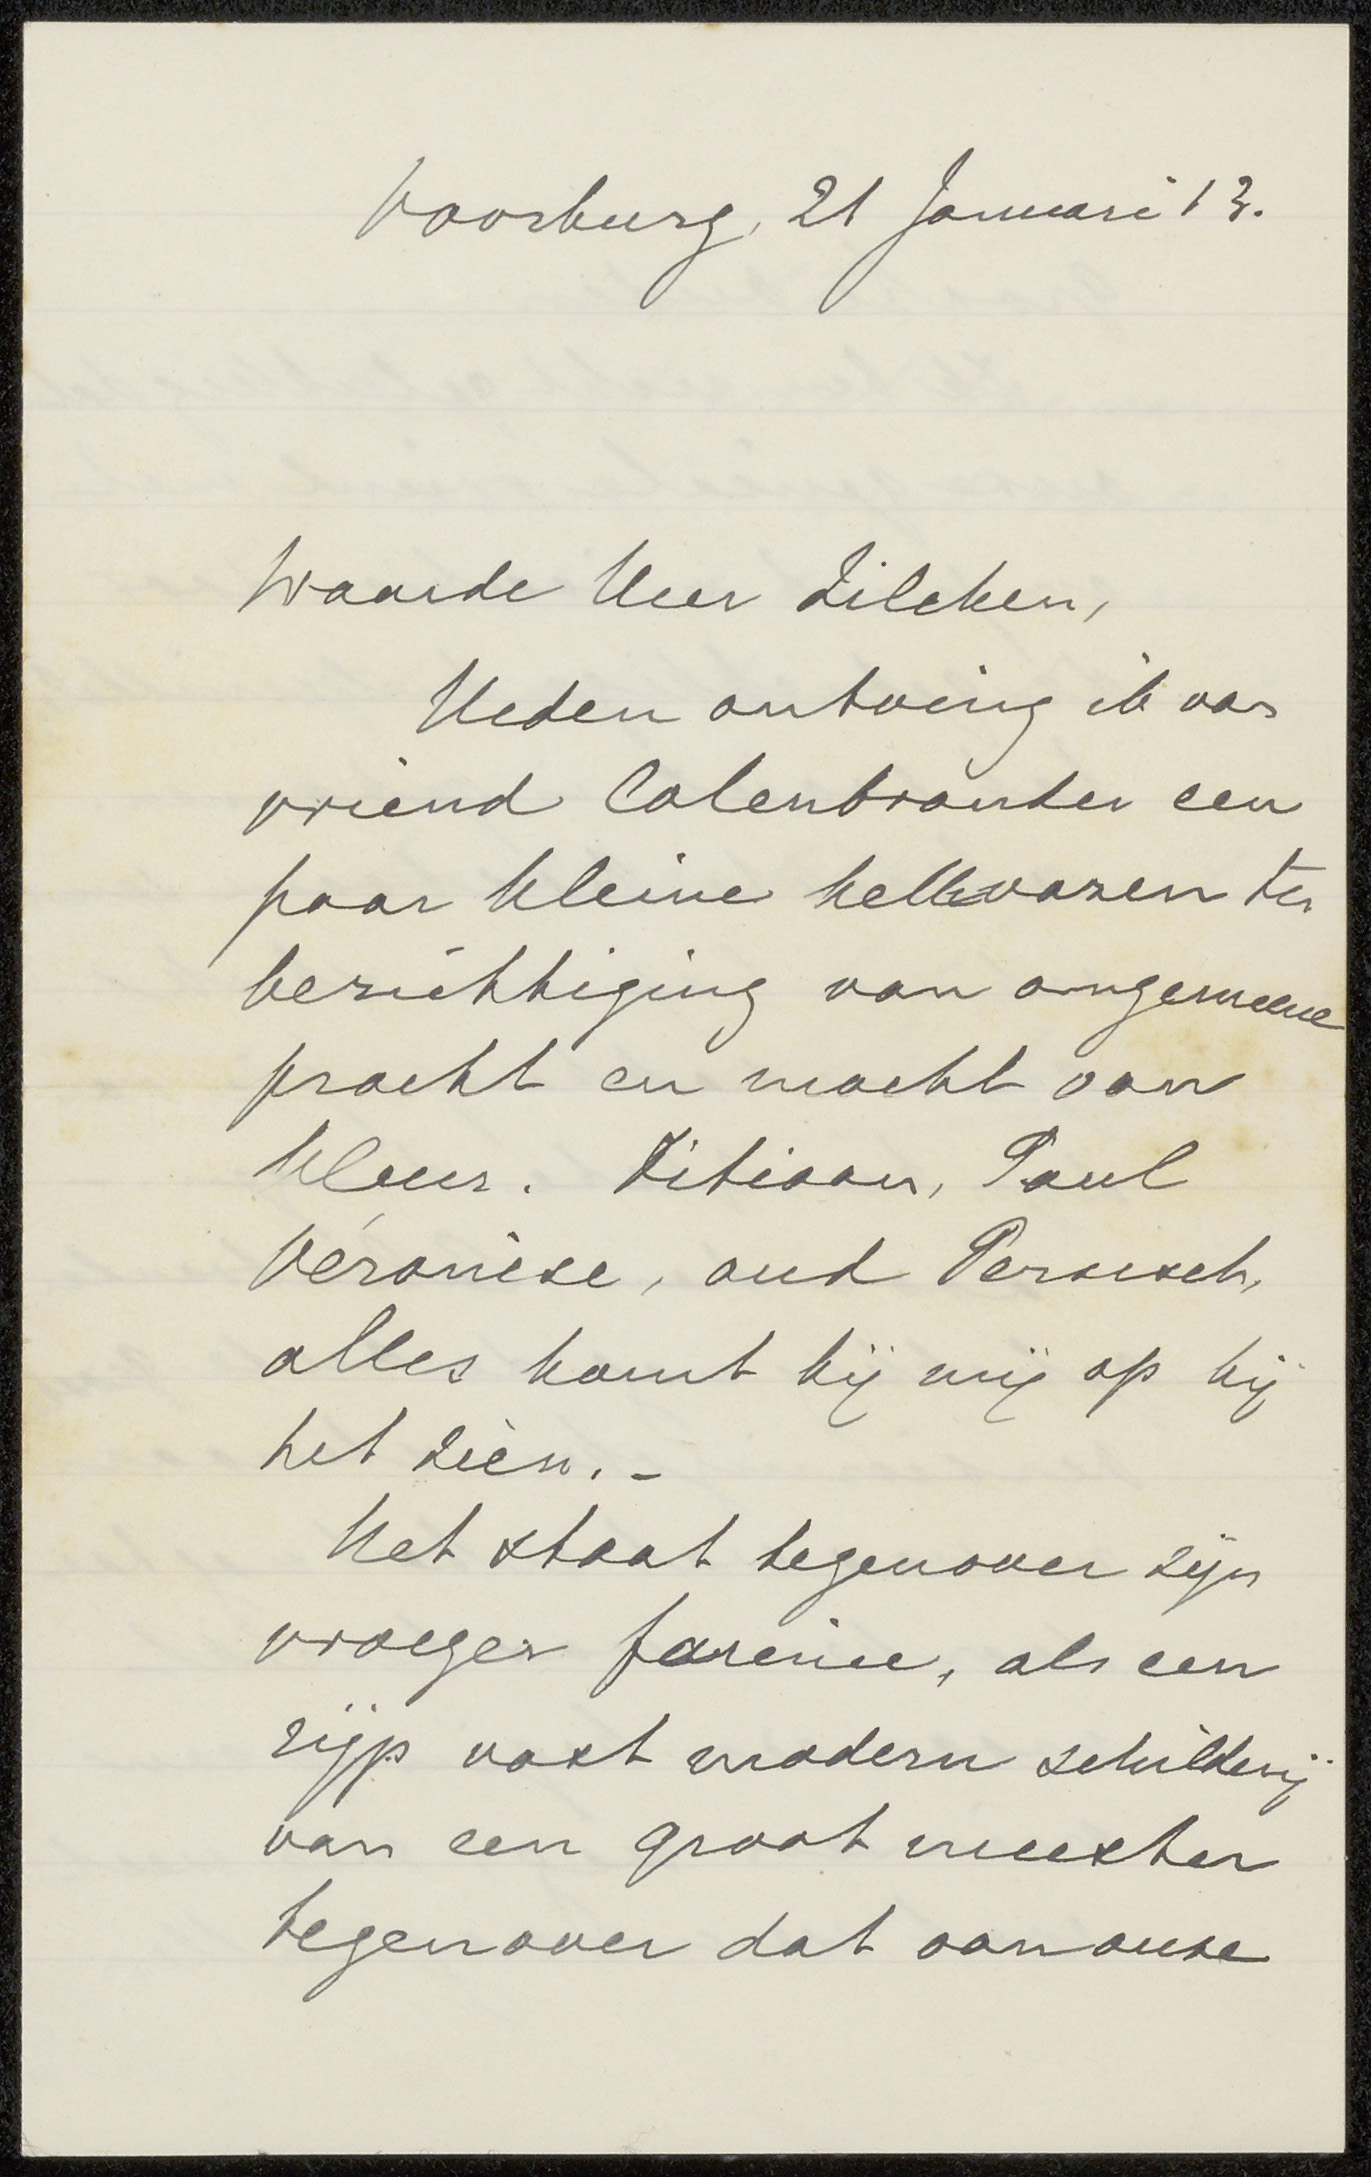 Voorburg, 21 Januari 13.
Waarde Heer Zilcken,
Heden ontving ik van
vriend Colenbrander een
paar kleine kelkvazen ter
bezichtiging van ongemeene
pracht en macht van
kleur. Titiaan, Paul
Véronèse, oud Persisch,
alles komt bij mij op bij
het zien. -
Het staat tegenover zijn
vroeger faience, als een
rijp vast modern schilderij
van een groot meester
tegenover dat van onze